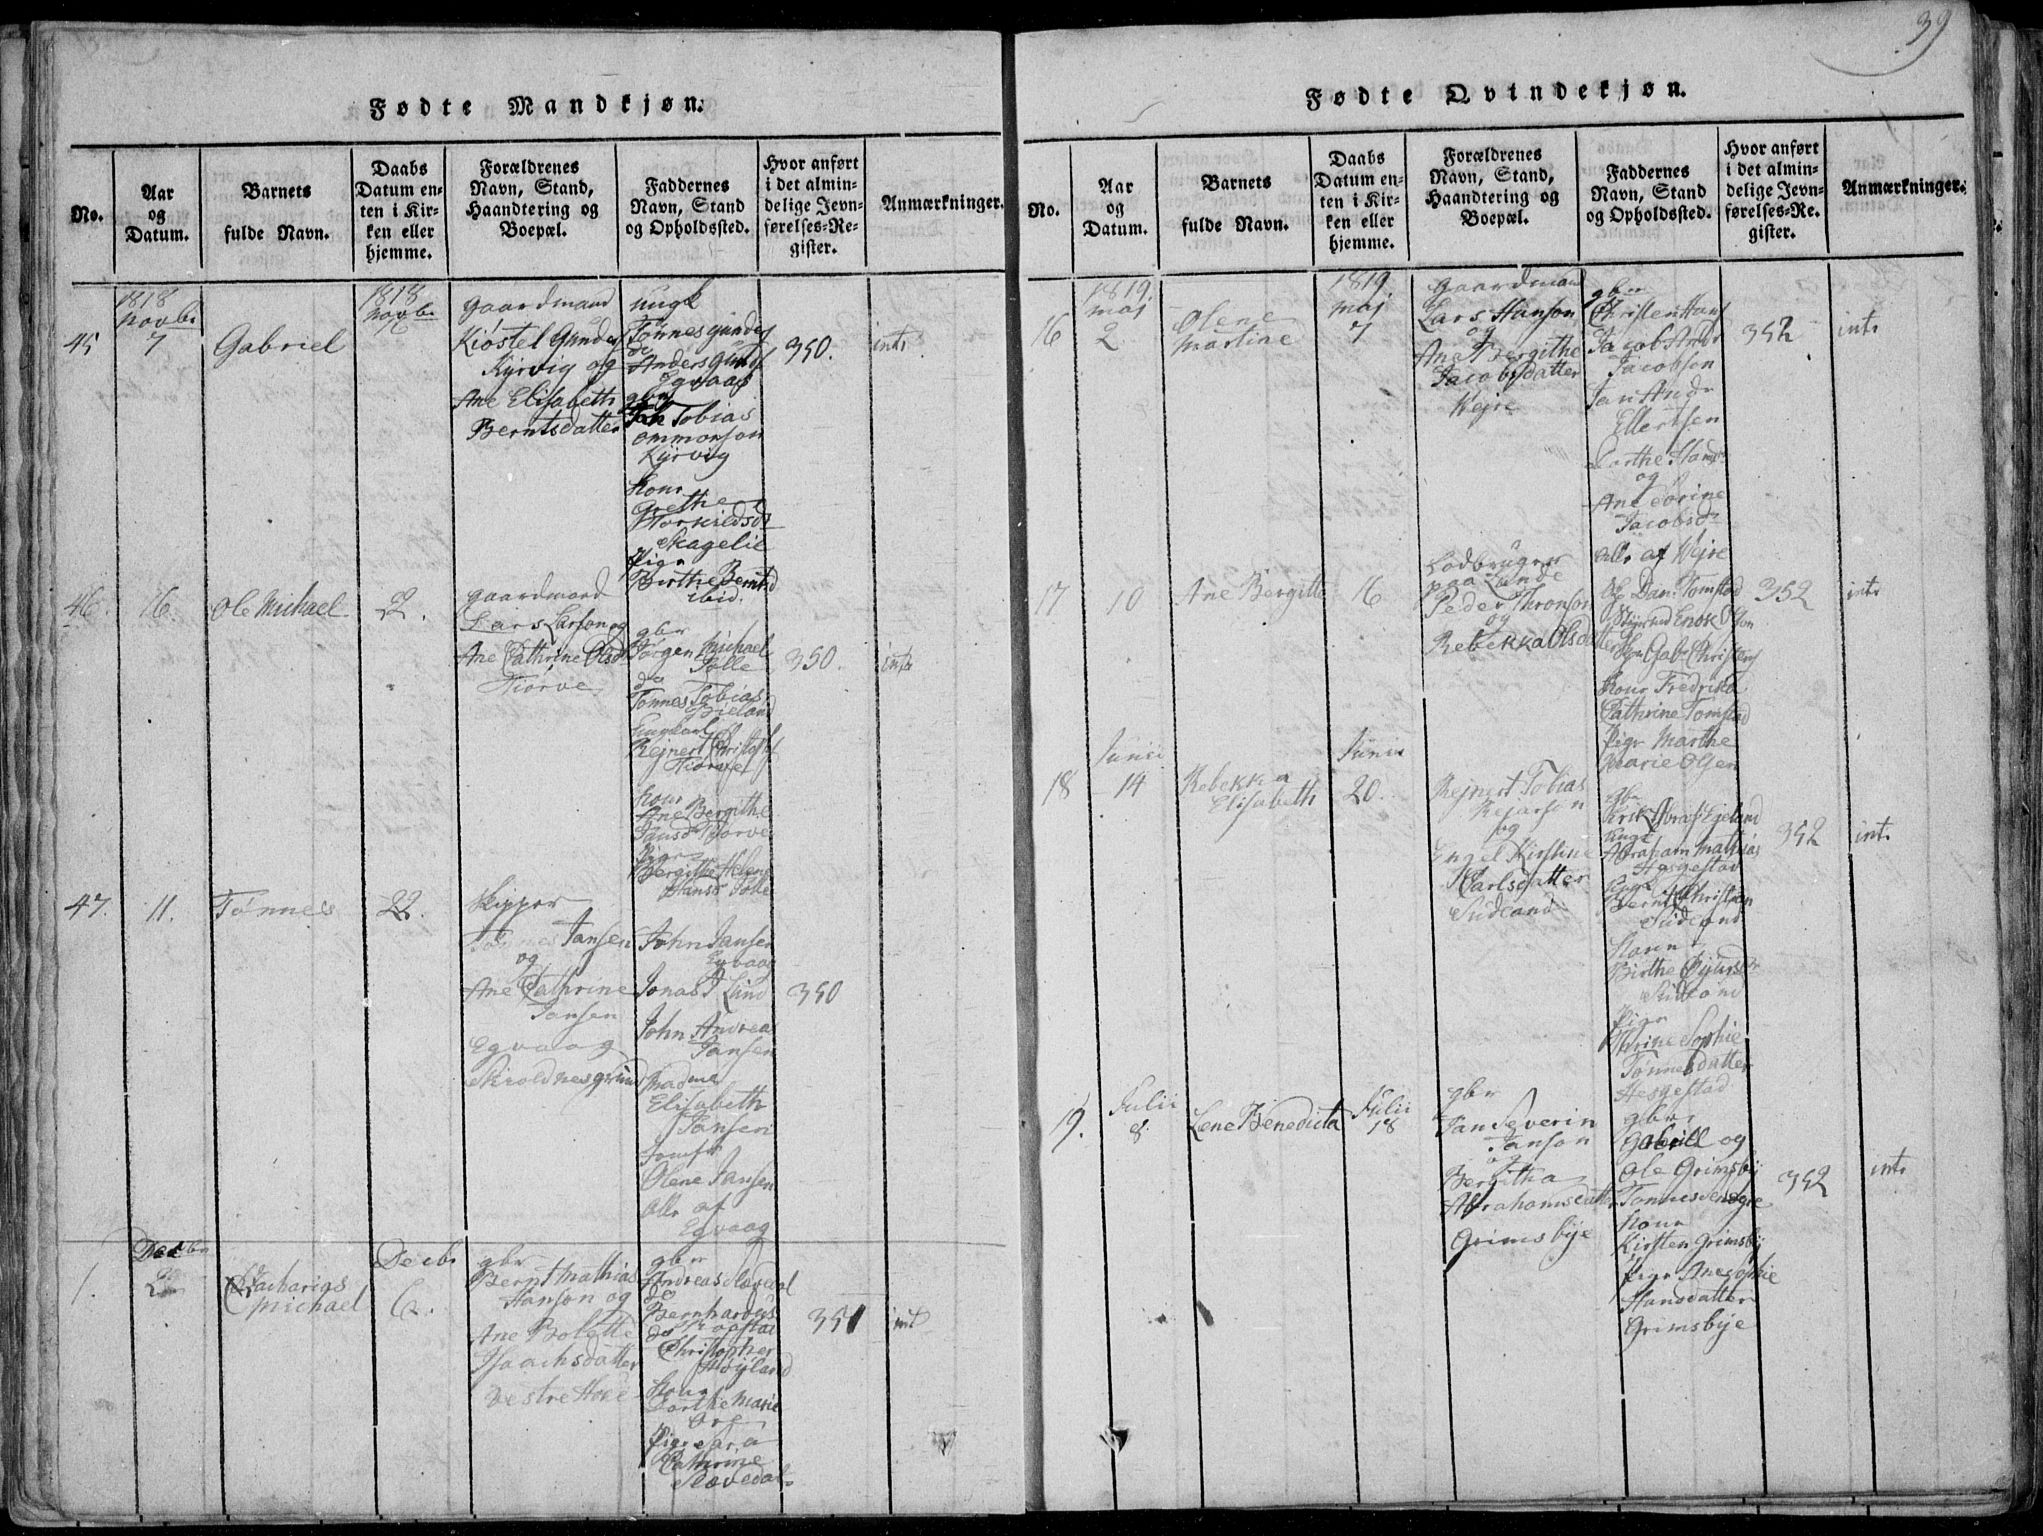 39
Fødte Mandkjøn.
No.
Aar
og
Datum.
Barnets
fulde Navn.
Daabs
Datum en-
ten i Kir-
ken eller
hjemme.
Forældrenes
Navn, Stand,
Haandtering og
Boepæl.
Faddernes
Navn, Stand
og Opholdssted.
Hvor anført
i det almin-
delige Jevn-
førelses-Re-
gister.
Anmærkninger.
45
1818
Novbr
7
Gabriel
1818
Novbr
gaardmand
Kiøstel Gunders
Kyrvig og
Ane Elisabeth
Berntsdatter
ungk
Tønnes Gunders
do
Anders
Egvaag
gbr
Tobias
Ommonson
Kyrvig
Kone
Grethe
Skagelie
Pige
Birthe Berntsd
ibid.
350.
int
46.
16.
Ole Michael
22.
gaardmand
Lars Larson og
Ane Cathrine Olsd
Tiørve
gbr
Jørgen Michael
Tolle
do
Tønnes Tobias
Ungkarl
Rejnert
Kone
Ane Bergithe
Tiørve
Pige
Bergitte Helene
Hansd Tolle
350.
int
47.
11.
Tønnes
22.
Skipper
Tønnes Jansen
og
Ane Cathrine
Jansen
Egvaag
John Jansen
Egvaag
Jonas Lund
John Andreas
Jansen
Madme
Elisabeth
Jansen
Jomfr
Olene Jansen
alle af
Egvaag
350
1.
Decbr
Zacharias
Michael
Decbr
6.
gbr
Bernt Mathias
Hanson og
Ane Bolette
Isaachsdatter
Vestre Hove
gbr
Andreas
do
Bernhardus
do
Christopher
Høyland
Kone
Dorthe Marie
Ore
Pige Sara
Cathrine
351
int
Fødte Qvindekjøn.
No.
Aar
og
Datum.
Barnets
fulde Navn.
Daabs
Datum en-
ten i Kir-
ken eller
hjemme.
Forældrenes
Navn, Stand,
Haandtering og
Boepæl.
Faddernes
Navn, Stand
og Opholdssted.
Hvor anført
i det almin-
delige Jevn-
førelses-Re-
gister.
Anmærkninger.
16
1819.
Maj
2
Olene
Martine
1819.
Maj
7
Gaardmand
Lars Hanson
og
Ane Bergithe
Jacobsdatter
Vejre
gbr
Christen Hans
Jacob
Jacobson
Jan Andr
Ellertsen
Dorthe Hansd
og
Ane Sorine
Jacobsdr
alle af Vejre
352
int.
17
10
Ane Bergitte
16
Lodbruger
paa Lunde
Peder Thronson
og
Rebekka Olsdatter
Ole Dan. Tomstad
Enok Olson
Gab. Christens
Kone Fredrikke
Cathrine Tomstad
Pige Marthe
Marie Olsen
352
int.
18
Junii
14
Rebekka
Elisabeth
Junii
20.
Rejnert Tobias
Rejerson
og
Engel Kirstine
Carlsdatter
Sudland
gbr
Erik Abrah Egeland
Ungk
Abraham Mathias
Hesgestad
Bernt Christian
Sudland
Kone
Birthe
Sudland
Pige
Thrine Sophie
Tønnesdatter
Hesgestad
352
int.
19.
Julii
8.
Lene Benedicta
Julii
18
gbr
Jan Severin
Janson
og
Bergitha
Abrahamsdatter
Grimsbye
gbr
Gabriel og
Ole Grimsby
Tønnes
Kone
Kirsten Grimsby
Pige Ane Sophie
Hansdatter
Grimsbye
352
int.